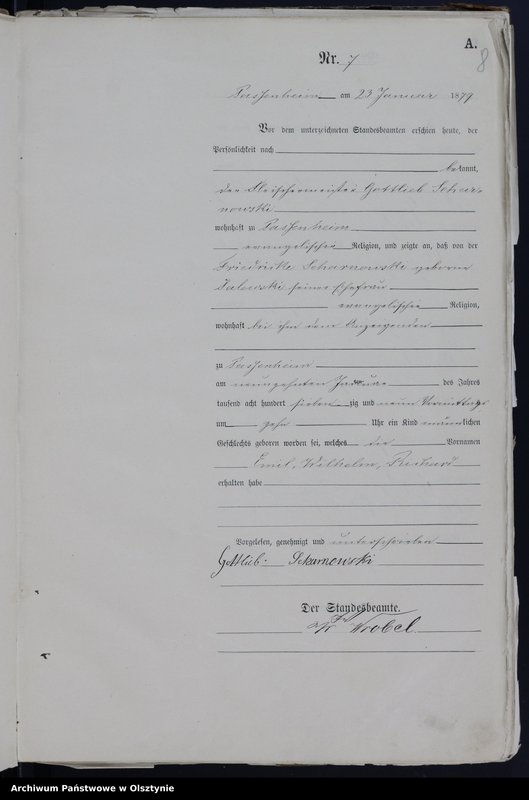 A.
8
Nr. 7
Passenheim am 23 Januar 1879
Vor dem unterzeichneten Standesbeamten erschien heute, der
Persönlichkeit nach
bekannt,
der Fleischermeister Gottlieb Schar-
nowski
wohnhaft zu Passenheim
evangelischer Religion, und zeigte an, daß von der
Friedricke Scharnowski geborne
seiner Ehefrau
evangelischer Religion,
wohnhaft bei ihm dem Anzeigenden
zu Passenheim
am neunzehnten Januar des Jahres
tausend acht hundert siebenzig und neun Vormittags
um zehn Uhr ein Kind männlichen
Geschlechts geboren worden sei, welches die Vornamen
Emil, Wilhelm, Richard
erhalten habe
Vorgelesen, genehmigt und unterschrieben
Gottlieb Scharnowski
Der Standesbeamte.
Wrobel
Archiwum Państwowe w Olsztynie